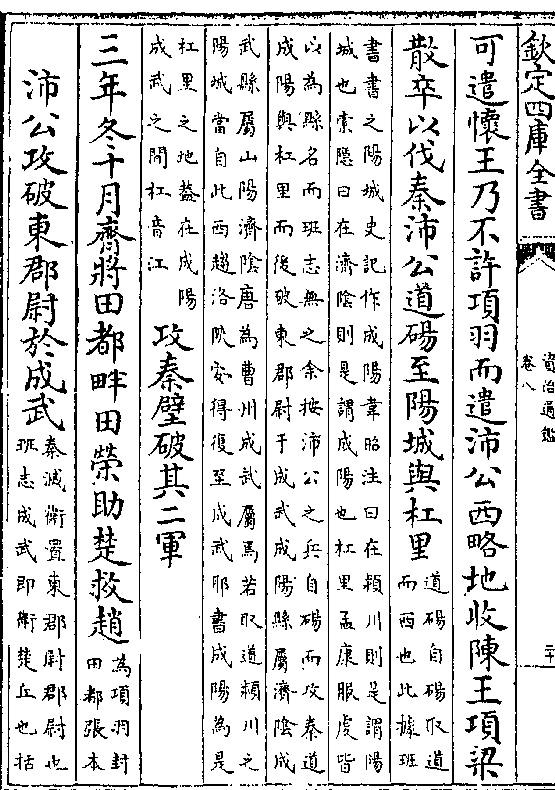 欽定四庫全書
資治通鑑
卷八
二十
可遣懷王乃不許項羽而遣沛公西略地收陳王項梁
散卒以伐秦沛公道碭至陽城與杠里道碭自碭取道而西也此據班
書書之陽城史記作成陽韋昭注曰在潁川則是謂陽
城也索隱曰在濟陰則是謂成陽也杠里孟康服虔皆
以為縣名而班志無之余按沛公之兵自碭而攻秦道
成陽與杠里而後破東郡尉于成武成陽縣屬濟陰成
武縣屬山陽濟陰唐為曹州成武屬焉若取道潁川之
陽城當自此西趨洛陜安得復至成武耶書成陽為是
杠里之地蓋在成陽
成武之間杠音江
攻秦壁破其二軍
三年冬十月齊將田都畔田榮助楚救趙為項羽封田都張本
沛公攻破東郡尉於成武秦滅衛置東郡尉郡尉也班志成武即衛楚丘也括